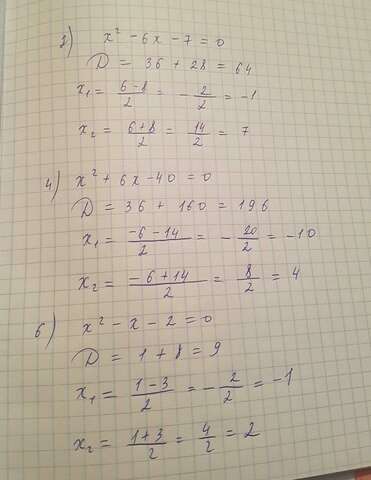 2) x² - 6x - 7 = 0
D = 36 + 28 = 64
x₁ = (6-8)/2 = -2/2 = -1
x₂ = (6+8)/2 = 14/2 = 7
4) x² + 6x - 40 = 0
D = 36 + 160 = 196
x₁ = (-6-14)/2 = -20/2 = -10
x₂ = (-6+14)/2 = 8/2 = 4
6) x² - x - 2 = 0
D = 1 + 8 = 9
x₁ = (1-3)/2 = -2/2 = -1
x₂ = (1+3)/2 = 4/2 = 2